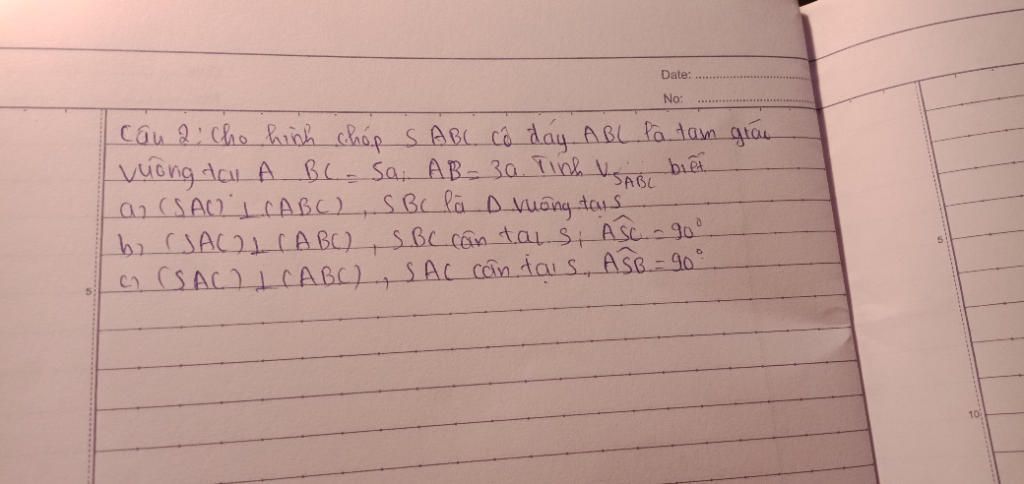 Date: ....................
No: ....................
Câu 2: Cho hình chóp S ABC. Có đáy ABC là tam giác
vuông tại A BC = 5a; AB = 3a. Tính V_SABC biết
a, (SAC) ⊥ (ABC), SBC là Δ vuông tại S
b, (SAC) ⊥ (ABC), SBC cân tại S, \widehat{ASC} = 90°
c, (SAC) ⊥ (ABC), SAC cân tại S, \widehat{ASB} = 90°
5
5
10